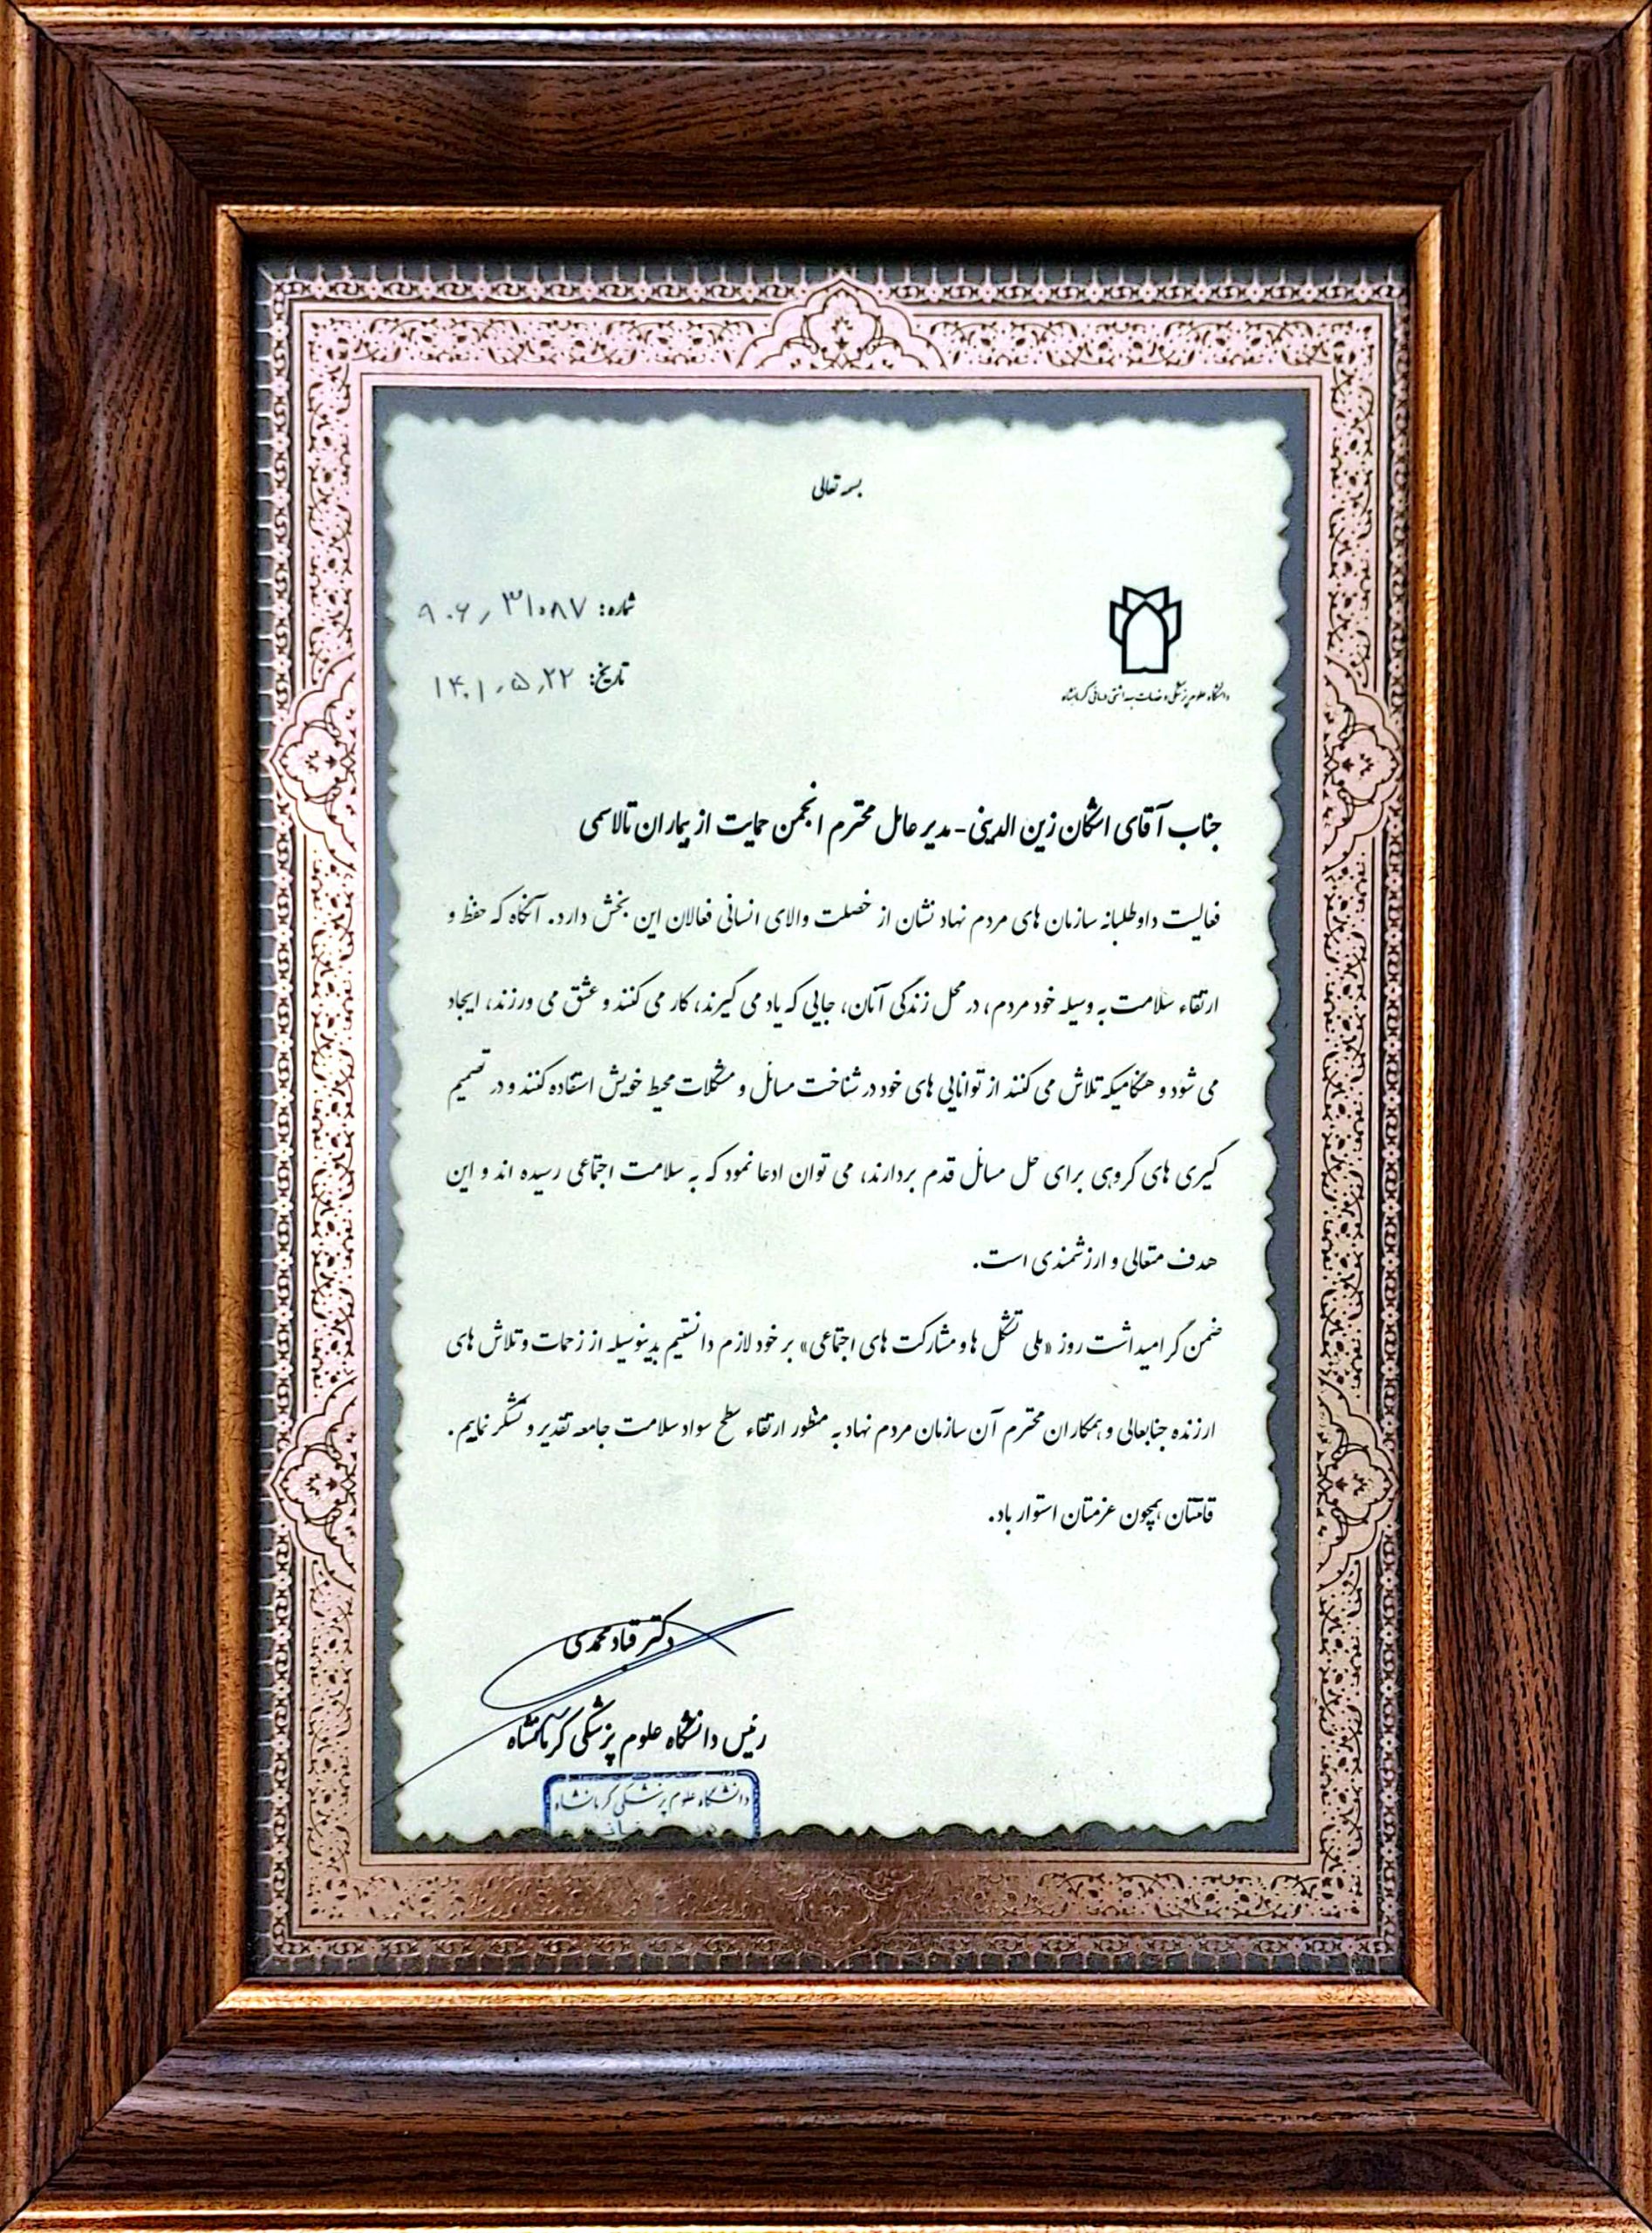 بسمه تعالی
شماره: ۹۰۶٫۳۱۰۸۷
تاریخ: ۱۴۰۱٫۵٫۲۲
دانشگاه علوم پزشکی و خدمات بهداشتی درمانی کرمانشاه
جناب آقای اشکان زین الدینی - مدیر عامل محترم انجمن حمایت از بیماران تالاسمی
فعالیت داوطلبانه سازمان های مردم نهاد نشان از خصلت والای انسانی فعالان این بخش دارد. آنگاه که حفظ و
ارتقاء سلامت به وسیله خود مردم، در محل زندگی آنان، جایی که یاد می گیرند، کار می کنند و عشق می ورزند، ایجاد
می شود و هنگامیکه تلاش می کنند از توانایی های خود در شناخت مسائل و مشکلات محیط خویش استفاده کنند و در تصمیم
گیری های گروهی برای حل مسائل قدم بردارند، می توان ادعا نمود که به سلامت اجتماعی رسیده اند و این
هدف متعالی و ارزشمندی است.
ضمن گرامیداشت روز «ملی تشکل ها و مشارکت های اجتماعی» بر خود لازم دانستیم بدینوسیله از زحمات و تلاش های
ارزنده جنابعالی و همکاران محترم آن سازمان مردم نهاد به منظور ارتقاء سطح سواد سلامت جامعه تقدیر و تشکر نماییم.
قامتتان همچون عزمتان استوار باد.
دکتر قباد محمدی
رئیس دانشگاه علوم پزشکی کرمانشاه
دانشگاه علوم پزشکی کرمانشاه